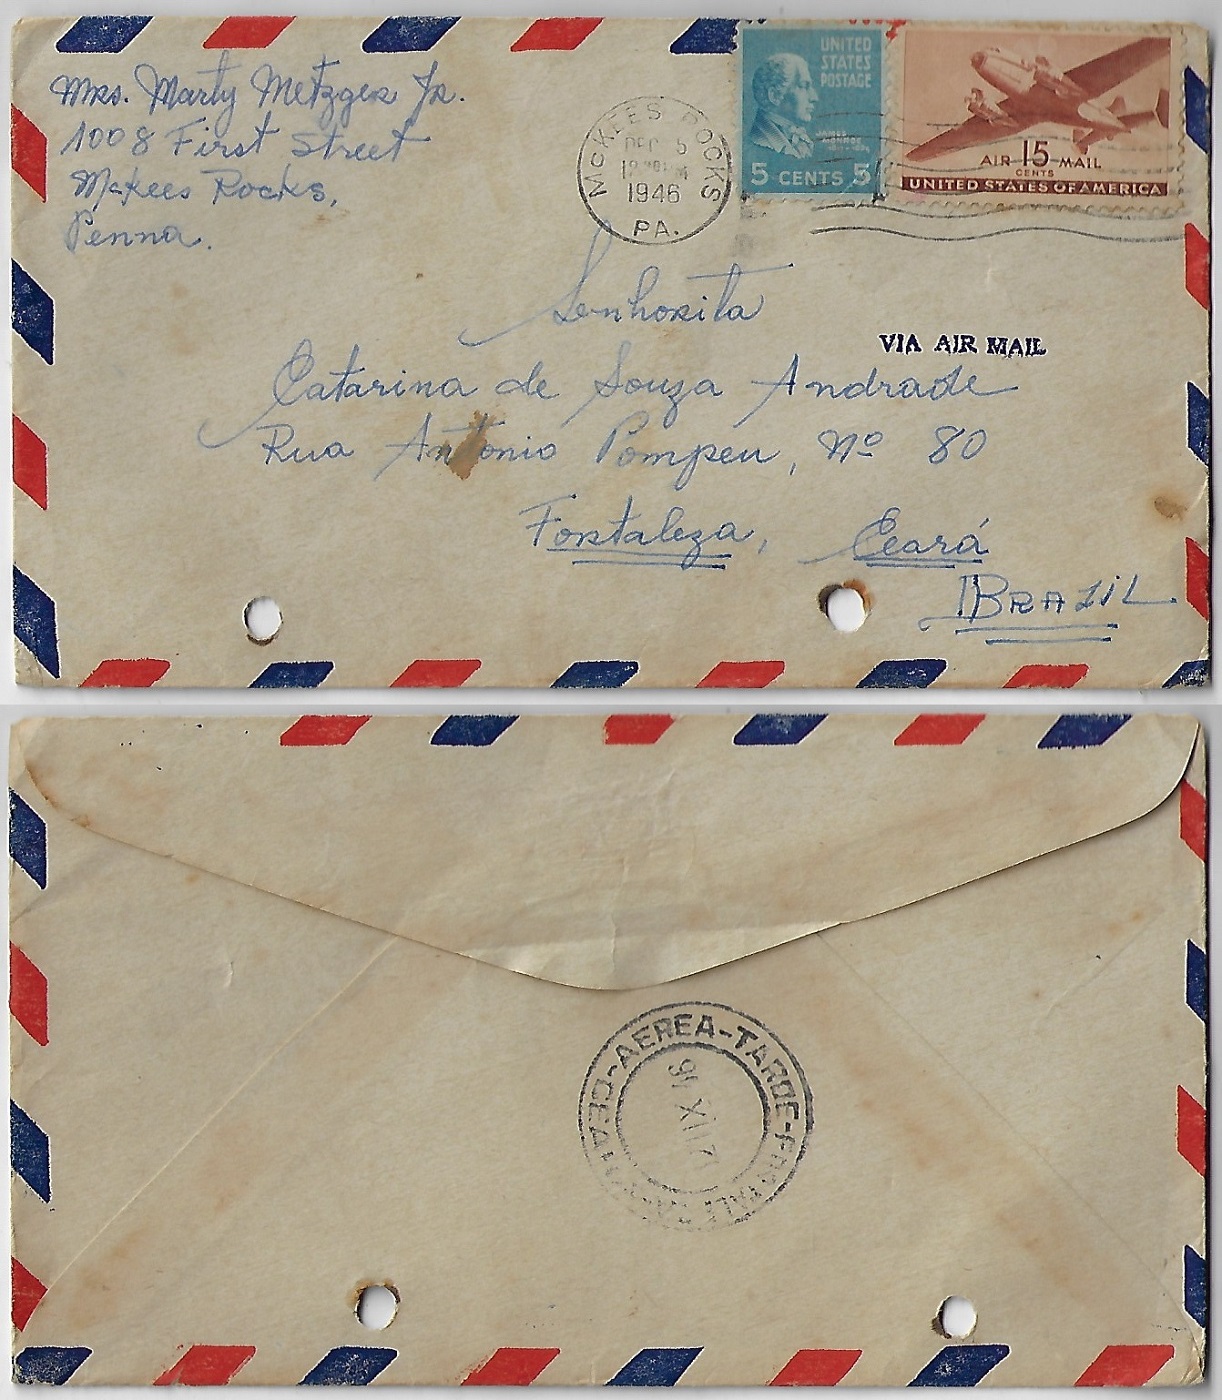 Mrs. Marty Metzger Jr.
1008 First Street
McKees Rocks,
Penna.
McKEES ROCKS
DEC 5
12
1946
PA.
UNITED
STATES
POSTAGE
JAMES
MONROE
5 CENTS 5
AIR 15 MAIL
CENTS
UNITED STATES OF AMERICA
Senhorita
VIA AIR MAIL
Catarina de Souza Andrade
Rua Antonio Pompeu, Nº 80
Fortaleza, Ceará
BRAZIL
AEREA-TARDE-
XII
46